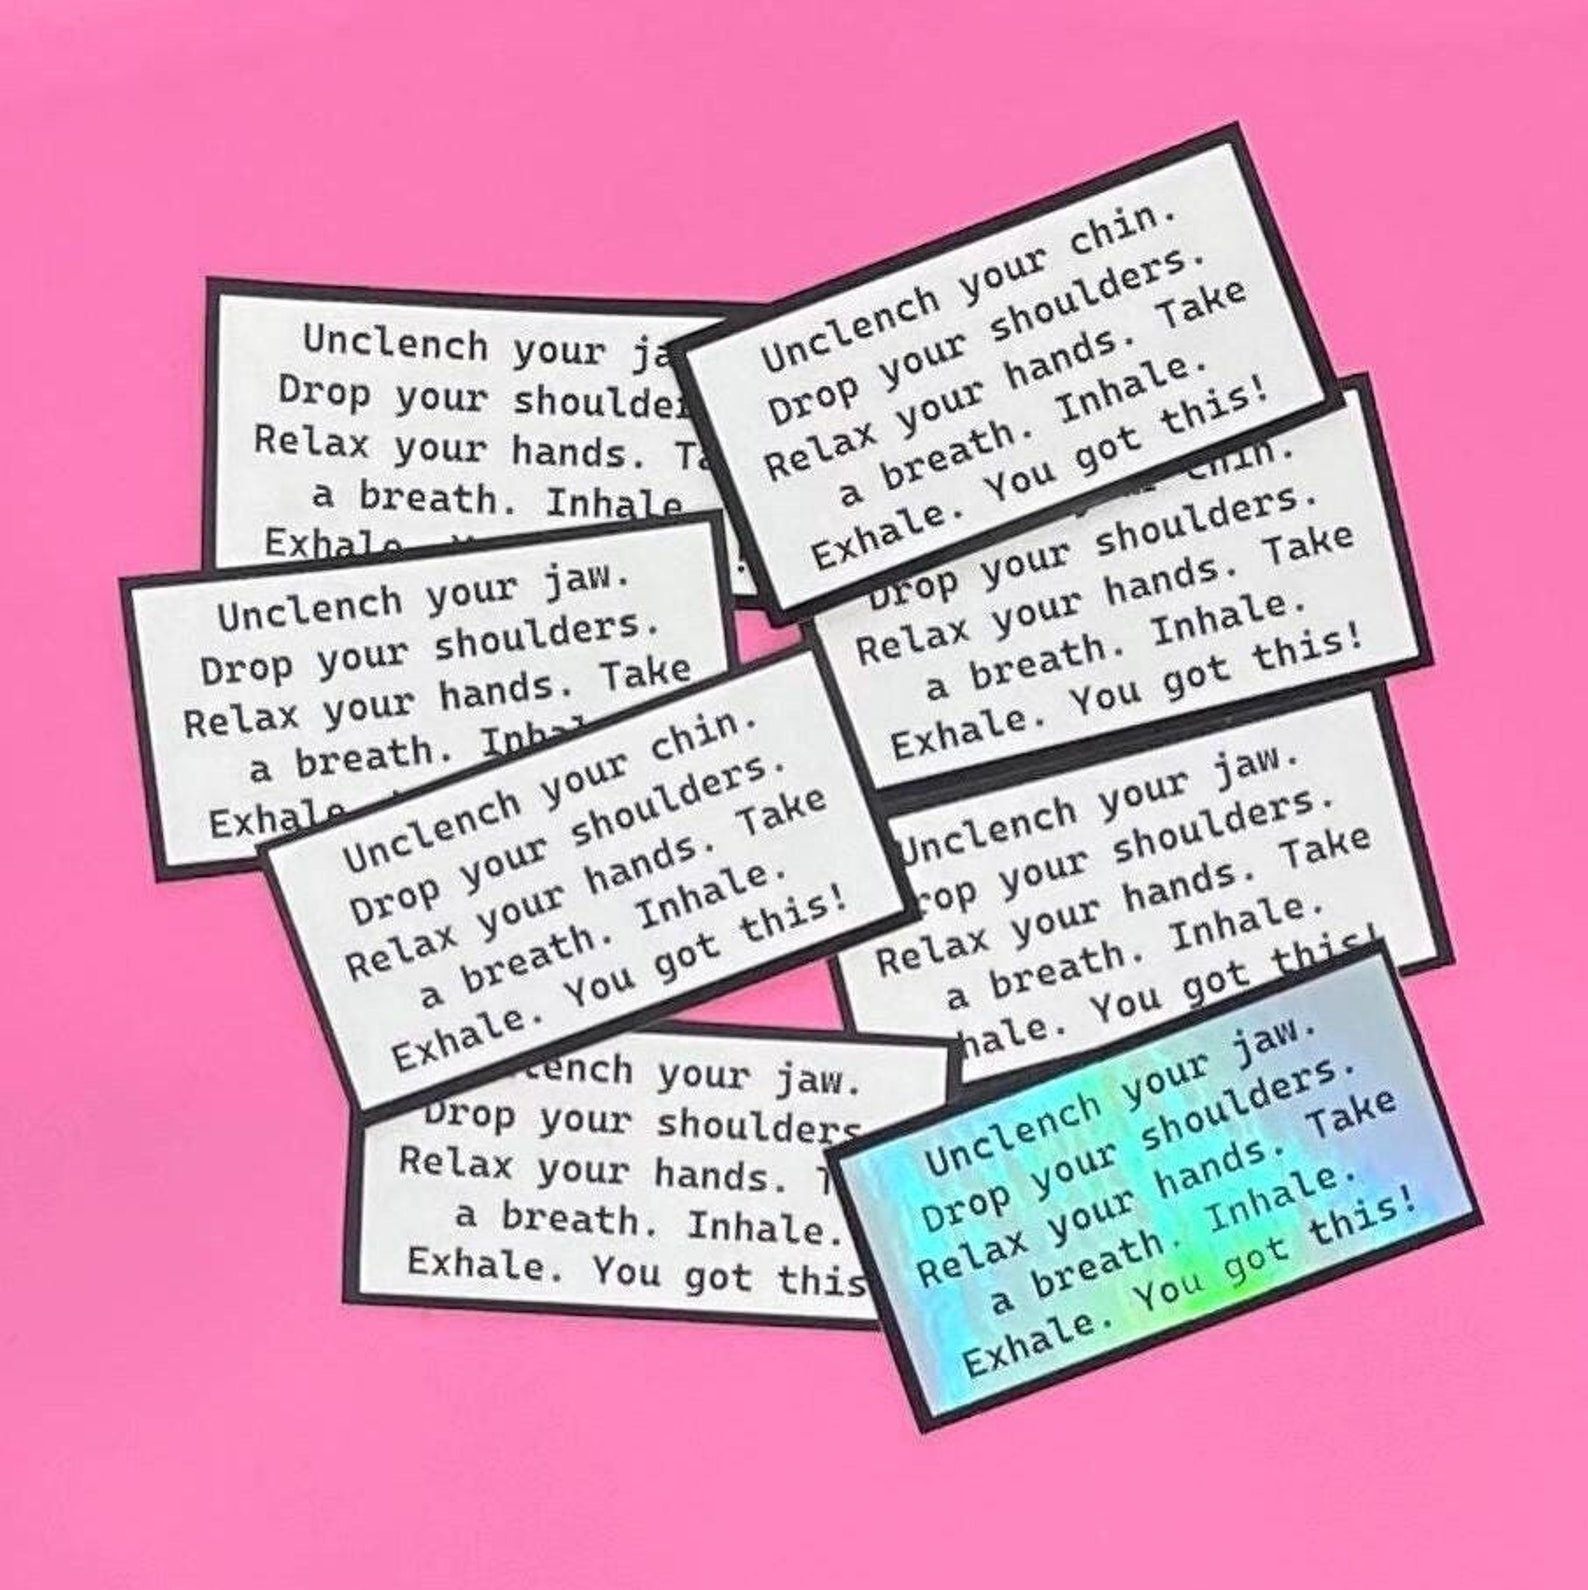 Unclench your
Drop your
Relax your hands.
a breath. Inhale
Unclench your chin.
Drop your shoulders.
Relax your hands. Take
a breath. Inhale.
Exhale. You got this!
chin.
Drop your shoulders.
Relax your hands. Take
a breath. Inhale.
Exhale. You got this!
Unclench your jaw.
Drop your shoulders.
Relax your hands. Take
a breath.
Exhale
Unclench your chin.
Drop your shoulders.
Relax your hands. Take
a breath. Inhale.
Exhale. You got this!
Unclench your jaw.
your shoulders.
Relax your hands. Take
a breath. Inhale.
You got this!
your jaw.
Drop your shoulders
Relax your hands.
a breath. Inhale.
Exhale. You got this
Unclench your jaw.
Drop your shoulders.
Relax your hands. Take
a breath. Inhale.
Exhale. You got this!